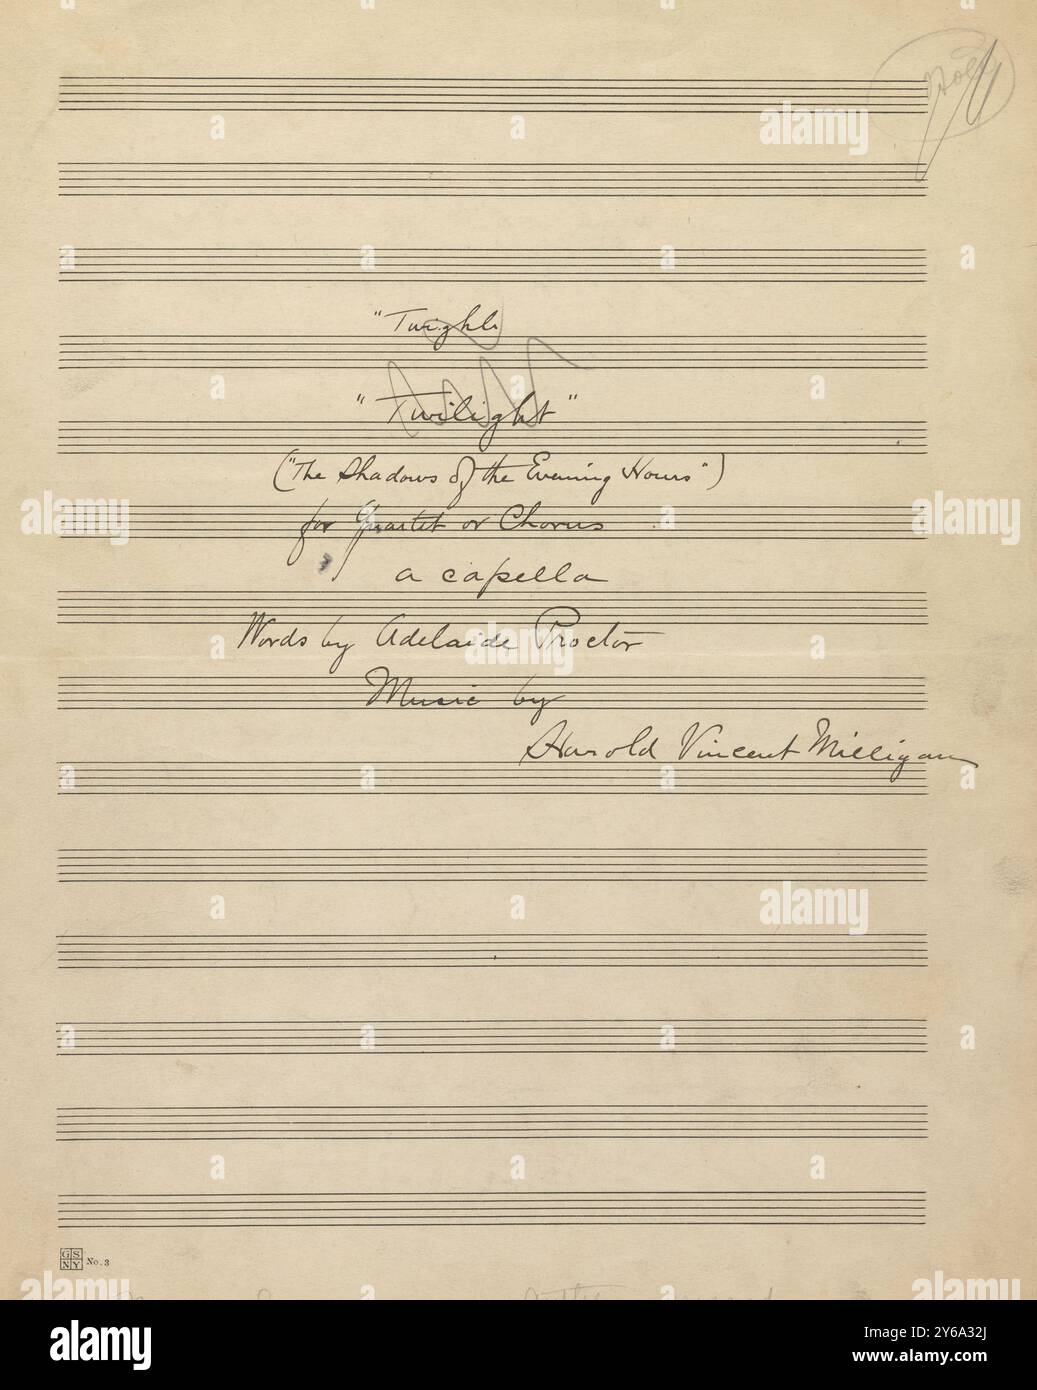 "Twighli
"Twilight"
("The Shadows of the Evening Hours")
for Quartet or Chorus
a capella
Words by Adelaide Proctor
Music by
Harold Vincent Milligan
GS
NY No. 3
alamy
Image ID: 2Y6A32J
www.alamy.com